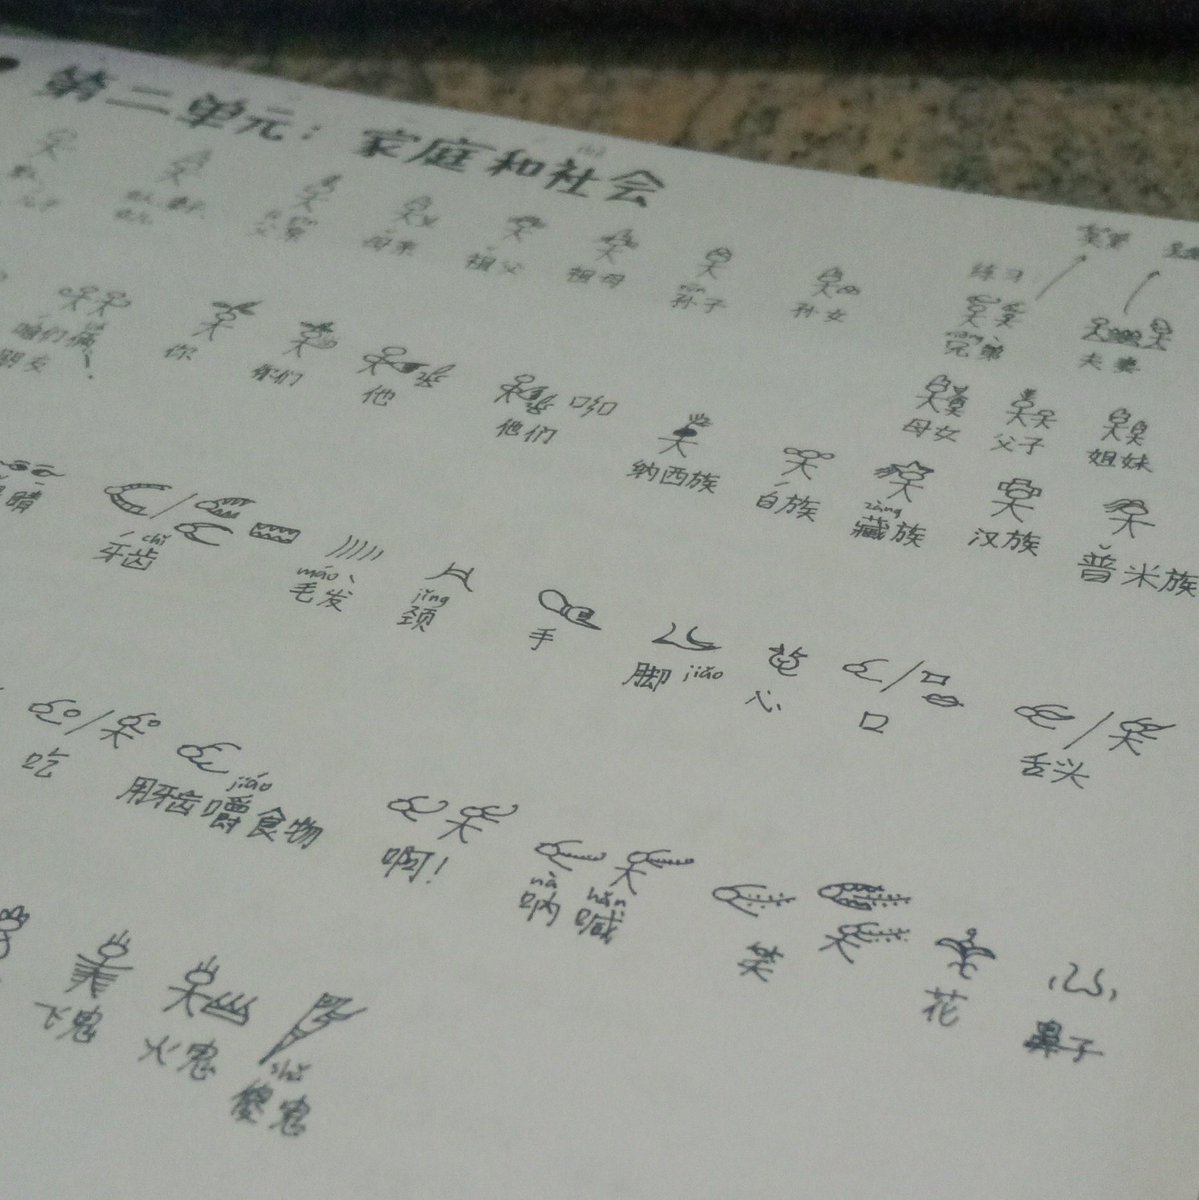 第二单元：家庭和社会
父亲 母亲 祖父 祖母 孙子 孙女 练习 兄弟 夫妻
咱们俩 你 你们 他 他们 母女 父子 姐妹
朋友
纳西族 白族 zàng 藏族 汉族 普米族
睛 chǐ 牙齿 máo 毛发 jǐng 颈 手 脚 jiǎo 心 口 舌头
吃 用牙齿嚼 jiáo 食物 啊！ nà hǎn 呐喊 笑 花 鼻子
飞鬼 火鬼 shǎ 傻鬼